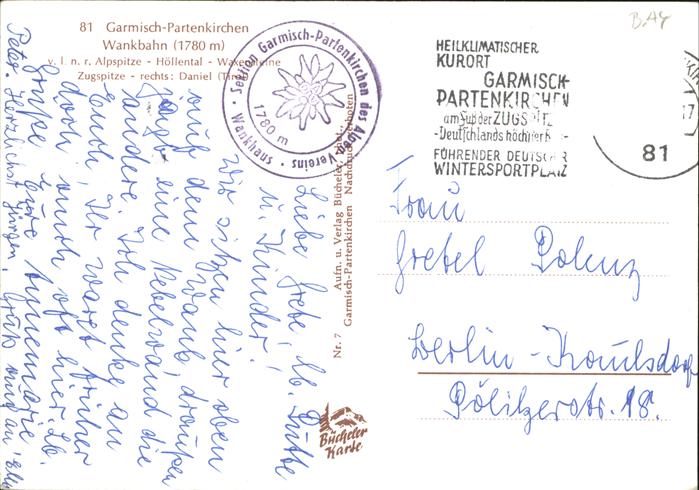 81 Garmisch-Partenkirchen
Wankbahn (1780 m)
v. l. n. r. Alpspitze - Höllental - Waxensteine
Zugspitze - rechts: Daniel (Tirol)
Sektion Garmisch-Partenkirchen des Alpen-Vereins
Wankhaus
1780 m
HEILKLIMATISCHER
KURORT
GARMISCH-
PARTENKIRCHEN
am Fuß der ZUGSPITZE
-Deutschlands höchster
FÜHRENDER DEUTSCHER
WINTERSPORTPLATZ
81
B.AY
Liebe Grete, lb. Dutte
u. Kinder!
Wir sitzen hier oben
auf dem Wank, draußen
jagt eine Nebelwand die
andere. Ich denke an
Euch, Ihr wart früher
doch auch oft hier. Lb.
Grüße Eure Annemarie
Peter. Herzlichst Jürgen. Gruß
Nr. 7 Aufn. u. Verlag Bücheler
Garmisch-Partenkirchen Nachdruck verboten
Bücheler
Karte
Frau
Gretel Polenz
Berlin-Kaulsdorf
Pölitzerstr. 18.